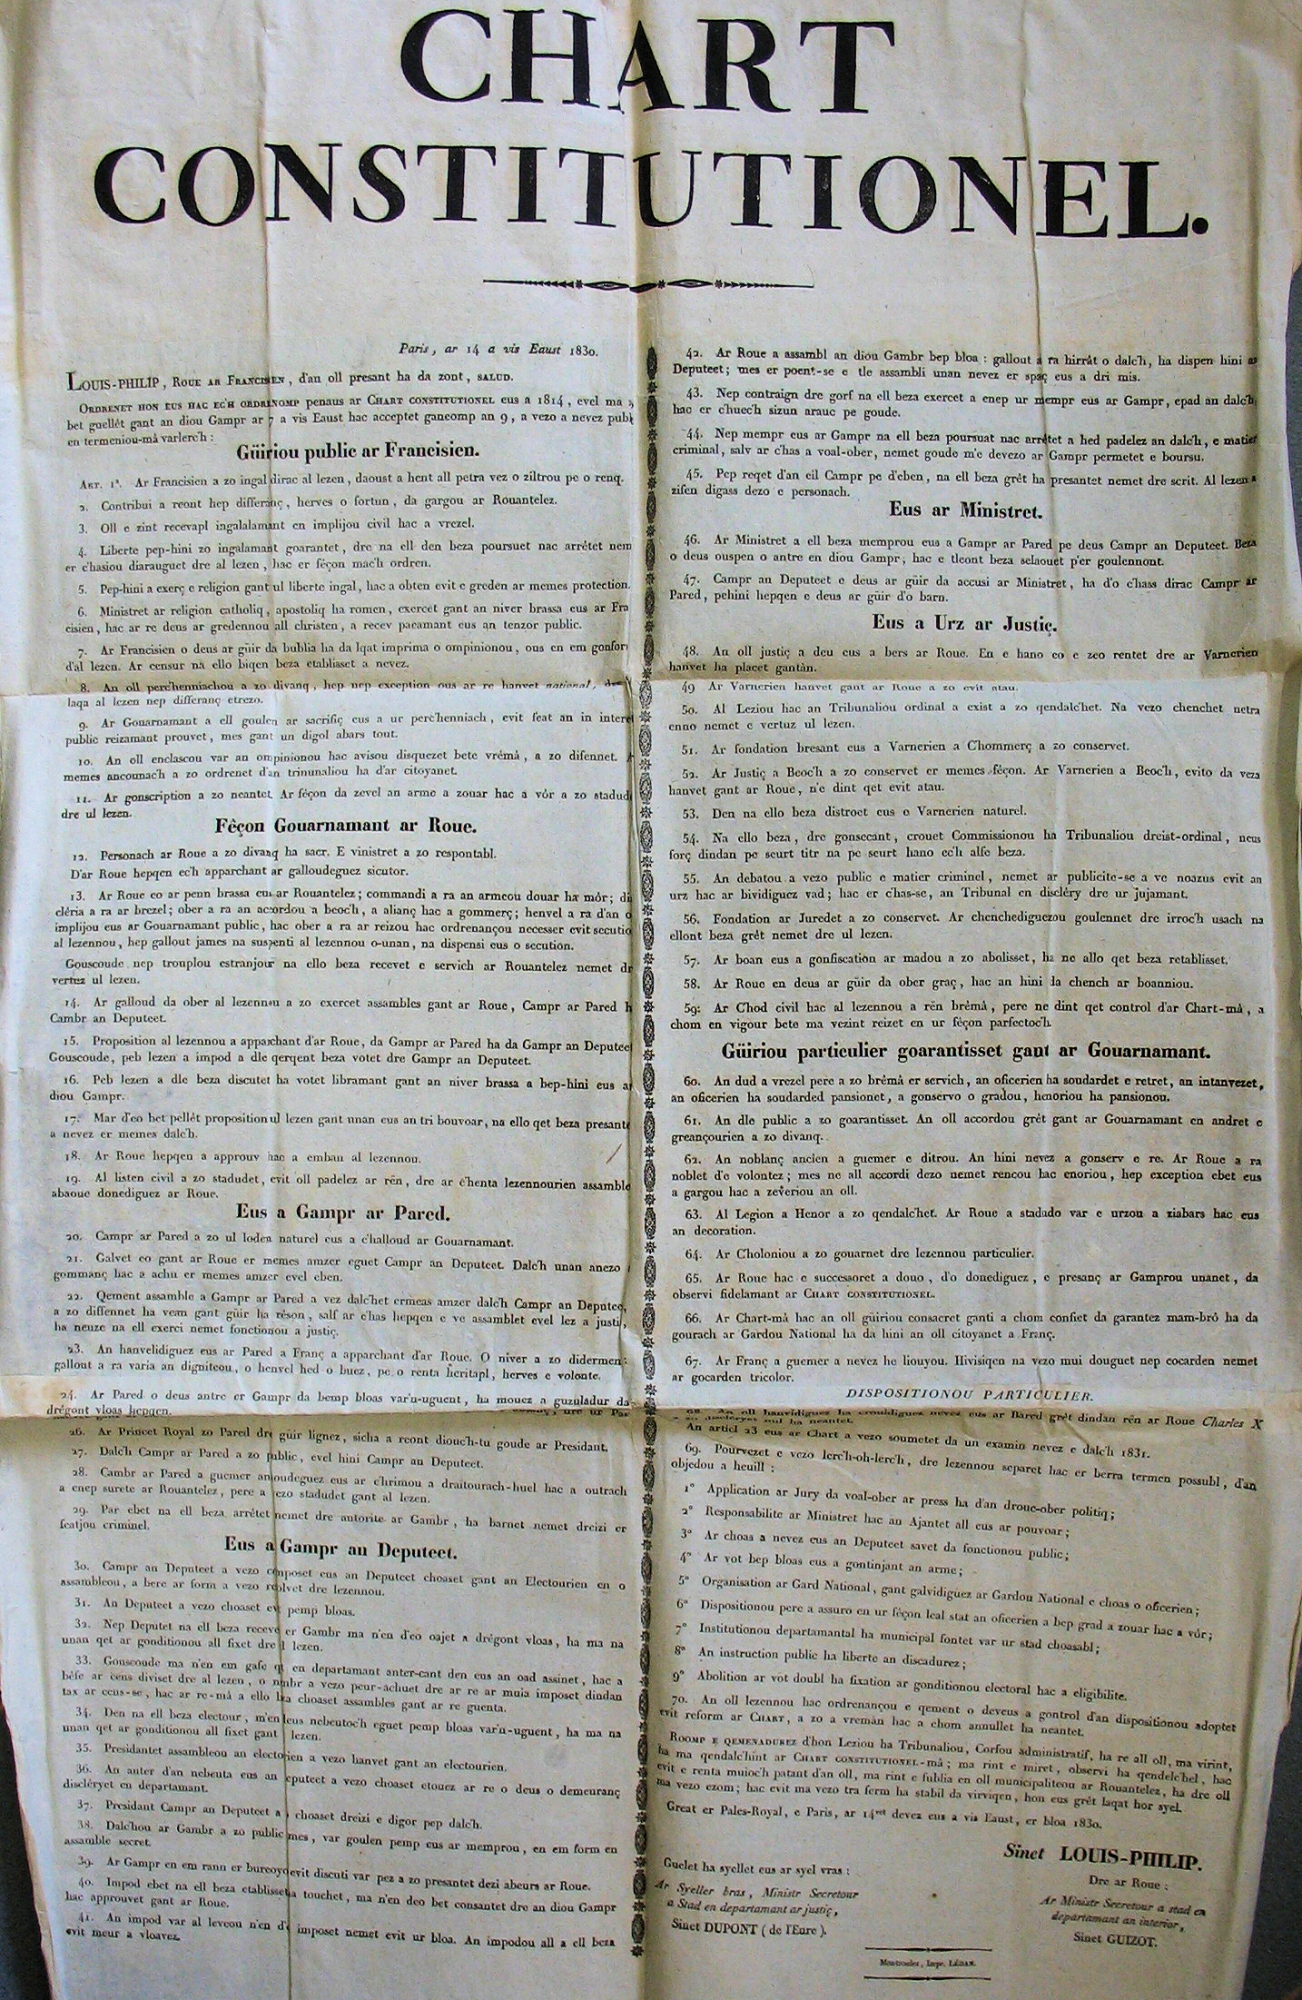 CHART
CONSTITUTIONEL.
Paris, ar 14 a vis Eaust 1830.
LOUIS-PHILIP, ROUE AR FRANCISIEN, d'an oll presant ha da zont, SALUD.
ORDRENET HON EUS HAC EC'H ORDRENOMP penaus ar CHART CONSTITUTIONEL eus a 1814, evel ma
bet guellét gant an diou Gampr ar 7 a vis Eaust hac acceptet gancomp an 9, a vezo a nevez publ
en termeniou-mâ varlerc'h :
Güiriou public ar Francisien.
ART. 1ᵃ. Ar Francisien a zo ingal dirac al lezen, daoust a hent all petra vez o ziltrou pe o renq.
2. Contribui a reont hep differanç, herves o fortun, da gargou ar Rouantelez.
3. Oll e zint recevapl ingalalamant en implijou civil hac a vrezel.
4. Liberte pep-hini zo ingalamant goarantet, dre na ell den beza poursuet nac arrétet nem
er c'hasiou diarauguet dre al lezen, hac er féçon mac'h ordren.
5. Pep-hini a exerç e religion gant ul liberte ingal, hac a obten evit e greden ar memes protection.
6. Ministret ar religion catholiq, apostoliq ha romen, exercet gant an niver brassa eus ar Fra
cisien, hac ar re deus ar gredennou all christen, a recev pacamant eus an tenzor public.
7. Ar Francisien o deus ar güir da bublia ha da lqat imprima o ompinionou, ous en em gonfor
d'al lezen. Ar censur na ello biqen beza etablisset a nevez.
8. An oll perc'henniachou a zo divanq, hep nep exception ous ar re hanvet national, dre
laqa al lezen nep differanç etrezo.
9. Ar Gouarnamant a ell goulen ar sacrifiç eus a ur perc'henniach, evit feat an in interet
public reizamant prouvet, mes gant un digol abars tout.
10. An oll enclascou var an ompinionou hac avisou disquezet bete vrémâ, a zo difennet.
memes ancounac'h a zo ordrenet d'an trinunaliou ha d'ar citoyanet.
11. Ar gonscription a zo neantet. Ar féçon da zevel an arme a zouar hac a vôr a zo stadud
dre ul lezen.
Féçon Gouarnamant ar Roue.
12. Personach ar Roue a zo divanq ha sacr. E vinistret a zo respontabl.
D'ar Roue hepqen ec'h apparchant ar galloudeguez sicutor.
13. Ar Roue eo ar penn brassa eus ar Rouantelez; commandi a ra an armeou douar ha môr; di
cléria a ra ar brezel; ober a ra an accordou a beoc'h, a alianç hac a gommerç; henvel a ra d'an o
implijou eus ar Gouarnamant public, hac ober a ra ar reizou hac ordrenançou necesser evit secutio
al lezennou, hep gallout james na suspenti al lezennou o-unan, na dispensi eus o secution.
Gouscoude nep trouplou estranjour na ello beza recevet e servich ar Rouantelez nemet dr
vertuz ul lezen.
14. Ar galloud da ober al lezennou a zo exercet assambles gant ar Roue, Campr ar Pared h
Cambr an Deputeet.
15. Proposition al lezennou a apparchant d'ar Roue, da Gampr ar Pared ha da Gampr an Deputeet
Gouscoude, peb lezen a impod a dle qerqent beza votet dre Gampr an Deputeet.
16. Peb lezen a dle beza discutet ha votet libramant gant an niver brassa a bep-hini eus a
diou Gampr.
17. Mar d'eo bet pellét proposition ul lezen gant unan eus an tri bouvoar, na ello qet beza presante
a nevez er memes dalc'h.
18. Ar Roue hepqen a approuv hac a emban al lezennou.
19. Al listen civil a zo stadudet, evit oll padelez ar rén, dre ar c'henta lezennourien assamble
abaoue donediguez ar Roue.
Eus a Gampr ar Pared.
20. Campr ar Pared a zo ul loden naturel eus a c'halloud ar Gouarnamant.
21. Galvet eo gant ar Roue er memes amzer eguet Campr an Deputeet. Dalc'h unan anezo
gommanç hac a achu er memes amzer evel eben.
22. Qement assamble a Gampr ar Pared a vez dalc'het ermeas amzer dalc'h Campr an Deputeet,
a zo diffennet ha vean gant güir ha réson, salf ar c'has hepqen e ve assamblet evel lez a justiç,
ha neuze na ell exerci nemet fonctionou a justiç.
23. An hanvelidiguez eus ar Pared a Franç a apparchant d'ar Roue. O niver a zo didermen;
gallout a ra varia an digniteou, o henvel hed o buez, pe o renta heritapl, herves e volonte.
24. Ar Pared o deus antre er Gampr da bemp bloas var'n-uguent, ha mouez a guzuladur da
drégont vloas hepqen.
26. Ar Princet Royal zo Pared dre güir lignez, sicha a reont diouc'h-tu goude ar Presidant.
27. Dalc'h Campr ar Pared a zo public, evel hini Campr an Deputeet.
28. Cambr ar Pared a guemer anoudeguez eus ar c'hrimou a draitourach-huel hac a outrach
a enep surete ar Rouantelez, pere a vezo stadudet gant al lezen.
29. Par ebet na ell beza arrétet nemet dre autorite ar Gambr, ha barnet nemet dreizi er
featjou criminel.
Eus a Gampr an Deputeet.
30. Campr an Deputeet a vezo composet eus an Deputeet choaset gant an Electourien en o
assambleou, a bere ar form a vezo reolvet dre lezennou.
31. An Deputeet a vezo choaset evit pemp bloas.
32. Nep Deputet na ell beza recevet er Gambr ma n'en d'eo oajet a drégont vloas, ha ma na
unan qet ar gonditionou all fixet dre al lezen.
33. Gouscoude ma n'en em gafe qet en departamant anter-cant den eus an oad assinet, hac a
béfe ar cens diviset dre al lezen, o nombr a vezo peur-achuet dre ar re ar muia imposet dindan
tax ar cens-se, hac ar re-mâ a ello beza choaset assambles gant ar re guenta.
34. Den na ell beza electour, m'en deus nebeutoc'h eguet pemp bloas var'n-uguent, ha ma na
unan qet ar gonditionou all fixet gant al lezen.
35. Presidantet assambleou an electourien a vezo hanvet gant an electourien.
36. An anter d'an nebeuta eus an Deputeet a vezo choaset etouez ar re o deus o demeuranç
discléryet en departamant.
37. Presidant Campr an Deputeet a zo choaset dreizi e digor pep dalc'h.
38. Dalc'hou ar Gambr a zo public mes, var goulen pemp eus ar memprou, en em form en
assamble secret.
39. Ar Gampr en em rann er bureoyo evit discuti var pez a zo presantet dezi abeurs ar Roue.
40. Impod ebet na ell beza etablisset na touchet, ma n'en deo bet consantet dre an diou Gampr
hac approuvet gant ar Roue.
41. An impod var al leveou n'en d'eo imposet nemet evit ur bloa. An impodou all a ell beza
evit meur a vloavez.
42. Ar Roue a assambl an diou Gambr bep bloa : gallout a ra hirrât o dalc'h, ha dispen hini an
Deputeet; mes er poent-se e tle assambli unan nevez er spaç eus a dri mis.
43. Nep contraign dre gorf na ell beza exercet a enep ur mempr eus ar Gampr, epad an dalc'h,
hac er c'huec'h sizun arauc pe goude.
44. Nep mempr eus ar Gampr na ell beza poursuat nac arrétet a hed padelez an dalc'h, e matier
criminal, salv ar c'has a voal-ober, nemet goude m'e devezo ar Gampr permetet e boursu.
45. Pep reqet d'an eil Campr pe d'eben, na ell beza grêt ha presantet nemet dre scrit. Al lezen a
zifen digass dezo e personach.
Eus ar Ministret.
46. Ar Ministret a ell beza memprou eus a Gampr ar Pared pe deus Campr an Deputeet. Beza
o deus ouspen o antre en diou Gampr, hac e tleont beza selaouet p'er goulennont.
47. Campr an Deputeet e deus ar güir da accusi ar Ministret, ha d'o c'hass dirac Campr ar
Pared, pehini hepqen e deus ar güir d'o barn.
Eus a Urz ar Justiç.
48. An oll justiç a deu eus a bers ar Roue. En e hano eo e zeo rentet dre ar Varnerien
hanvet ha placet gantàn.
49 Ar Varnerien hanvet gant ar Roue a zo evit atau.
50. Al Leziou hac an Tribunaliou ordinal a exist a zo qendalc'het. Na vezo chenchet netra
enno nemet e vertuz ul lezen.
51. Ar fondation bresant eus a Varnerien a C'hommerç a zo conservet.
52. Ar Justiç a Beoc'h a zo conservet er memes féçon. Ar Varnerien a Beoc'h, evito da veza
hanvet gant ar Roue, n'e dint qet evit atau.
53. Den na ello beza distroet eus o Varnerien naturel.
54. Na ello beza, dre gonsecant, crouet Commissionou ha Tribunaliou dreist-ordinal, neus
forç dindan pe seurt titr na pe seurt hano ec'h alfe beza.
55. An debatou a vezo public e matier criminel, nemet ar publicite-se a ve noazus evit an
urz hac ar bividiguez vad; hac er c'has-se, an Tribunal en discléry dre ur jujamant.
56. Fondation ar Juredet a zo conservet. Ar chenchediguezou goulennet dre irroc'h usach na
ellont beza grêt nemet dre ul lezen.
57. Ar boan eus a gonfiscation ar madou a zo abolisset, ha ne allo qet beza retablisset.
58. Ar Roue en deus ar güir da ober graç, hac an hini da chench ar boanniou.
59: Ar C'hod civil hac al lezennou a rén brémâ, pere ne dint qet control d'ar Chart-mâ, a
chom en vigour bete ma vezint reizet en ur féçon parfectoc'h
Güiriou particulier goarantisset gant ar Gouarnamant.
60. An dud a vrezel pere a zo brémâ er servich, an oficerien ha soudardet e retret, an intanvezet,
an oficerien ha soudarded pansionet, a gonservo o gradou, henoriou ha pansionou.
61. An dle public a zo goarantisset. An oll accordou grêt gant ar Gouarnamant en andret e
greançourien a zo divanq.
62. An noblanç ancien a guemer e ditrou. An hini nevez a gonserv e re. Ar Roue a ra
noblet d'e volontez; mes ne all accordi dezo nemet rencou hac enoriou, hep exception ebet eus
a gargou hac a zevêriou an oll.
63. Al Legion a Henor a zo qendalc'het. Ar Roue a stadudo var e urzou a ziabars hac eus
an decoration.
64. Ar C'holoniou a zo gouarnet dre lezennou particulier.
65. Ar Roue hac e successoret a douo, d'o donediguez, e presanç ar Gamprou unanet, da
observi fidelamant ar CHART CONSTITUTIONEL.
66. Ar Chart-mâ hac an oll güiriou consacret ganti a chom confiet da garantez mam-brô ha da
gourach ar Gardou National ha da hini an oll citoyanet a Franç.
67. Ar Franç a guemer a nevez he liouyou. Hivisiqen na vezo mui douguet nep cocarden nemet
ar gocarden tricolor.
DISPOSITIONOU PARTICULIER.
68. An oll hanvidiguez ha crouidiguez nevez eus ar Bared grêt dindan rén ar Roue Charles X
zo discléryet nul ha neantet.
An articl 23 eus ar Chart a vezo soumetet da un examin nevez e dalc'h 1831.
69. Pourvezet e vezo lerc'h-oh-lerc'h, dre lezennou separet hac er berra termen possubl, d'an
objedou a heuill :
1° Application ar Jury da voal-ober ar press ha d'an drouc-ober politiq;
2° Responsabilite ar Ministret hac an Ajantet all eus ar pouvoar;
3° Ar choas a nevez eus an Deputeet savet da fonctionou public;
4° Ar vot bep bloas eus a gontinjant an arme;
5° Organisation ar Gard National, gant galvidiguez ar Gardou National e choas o oficerien;
6° Dispositionou pere a assuro en ur féçon leal stat an oficerien a bep grad a zouar hac a vôr;
7° Institutionou departamantal ha municipal fontet var ur stad choasabl;
8° An instruction public ha liberte an discadurez;
9° Abolition ar vot doubl ha fixation ar gonditionou electoral hac a eligibilite.
70. An oll lezennou hac ordrenançou e qement o deveus a gontrol d'an dispositionou adoptet
evit reform ar CHART, a zo a vremàn hac a chom annullet ha neantet.
ROOMP E QEMENADUREZ d'hon Leziou ha Tribunaliou, Corfou administratif, ha re all oll, ma virint,
ha ma qendalc'hint ar CHART CONSTITUTIONEL-mâ; ma rint e miret, observi ha qendelc'hel, hac
evit e renta muioc'h patant d'an oll, ma rint e fublia en oll municipaliteou ar Rouantelez, ha dre oll
ma vezo ezom; hac evit ma vezo tra ferm ha stabil da virviqen, hon eus grêt laqat hor syel.
Great er Pales-Royal, e Paris, ar 14ᵛᵉᵗ devez eus a vis Eaust, er bloa 1830.
Sinet LOUIS-PHILIP.
Dre ar Roue :
Ar Ministr Secretour a stad en
departamant an interior,
Sinet GUIZOT.
Guelet ha syellet eus ar syel vras :
Ar Syeller bras, Ministr Secretour
a Stad en departamant ar justiç,
Sinet DUPONT ( de l'Eure ).
Montroules, Impr. LÉDAN.